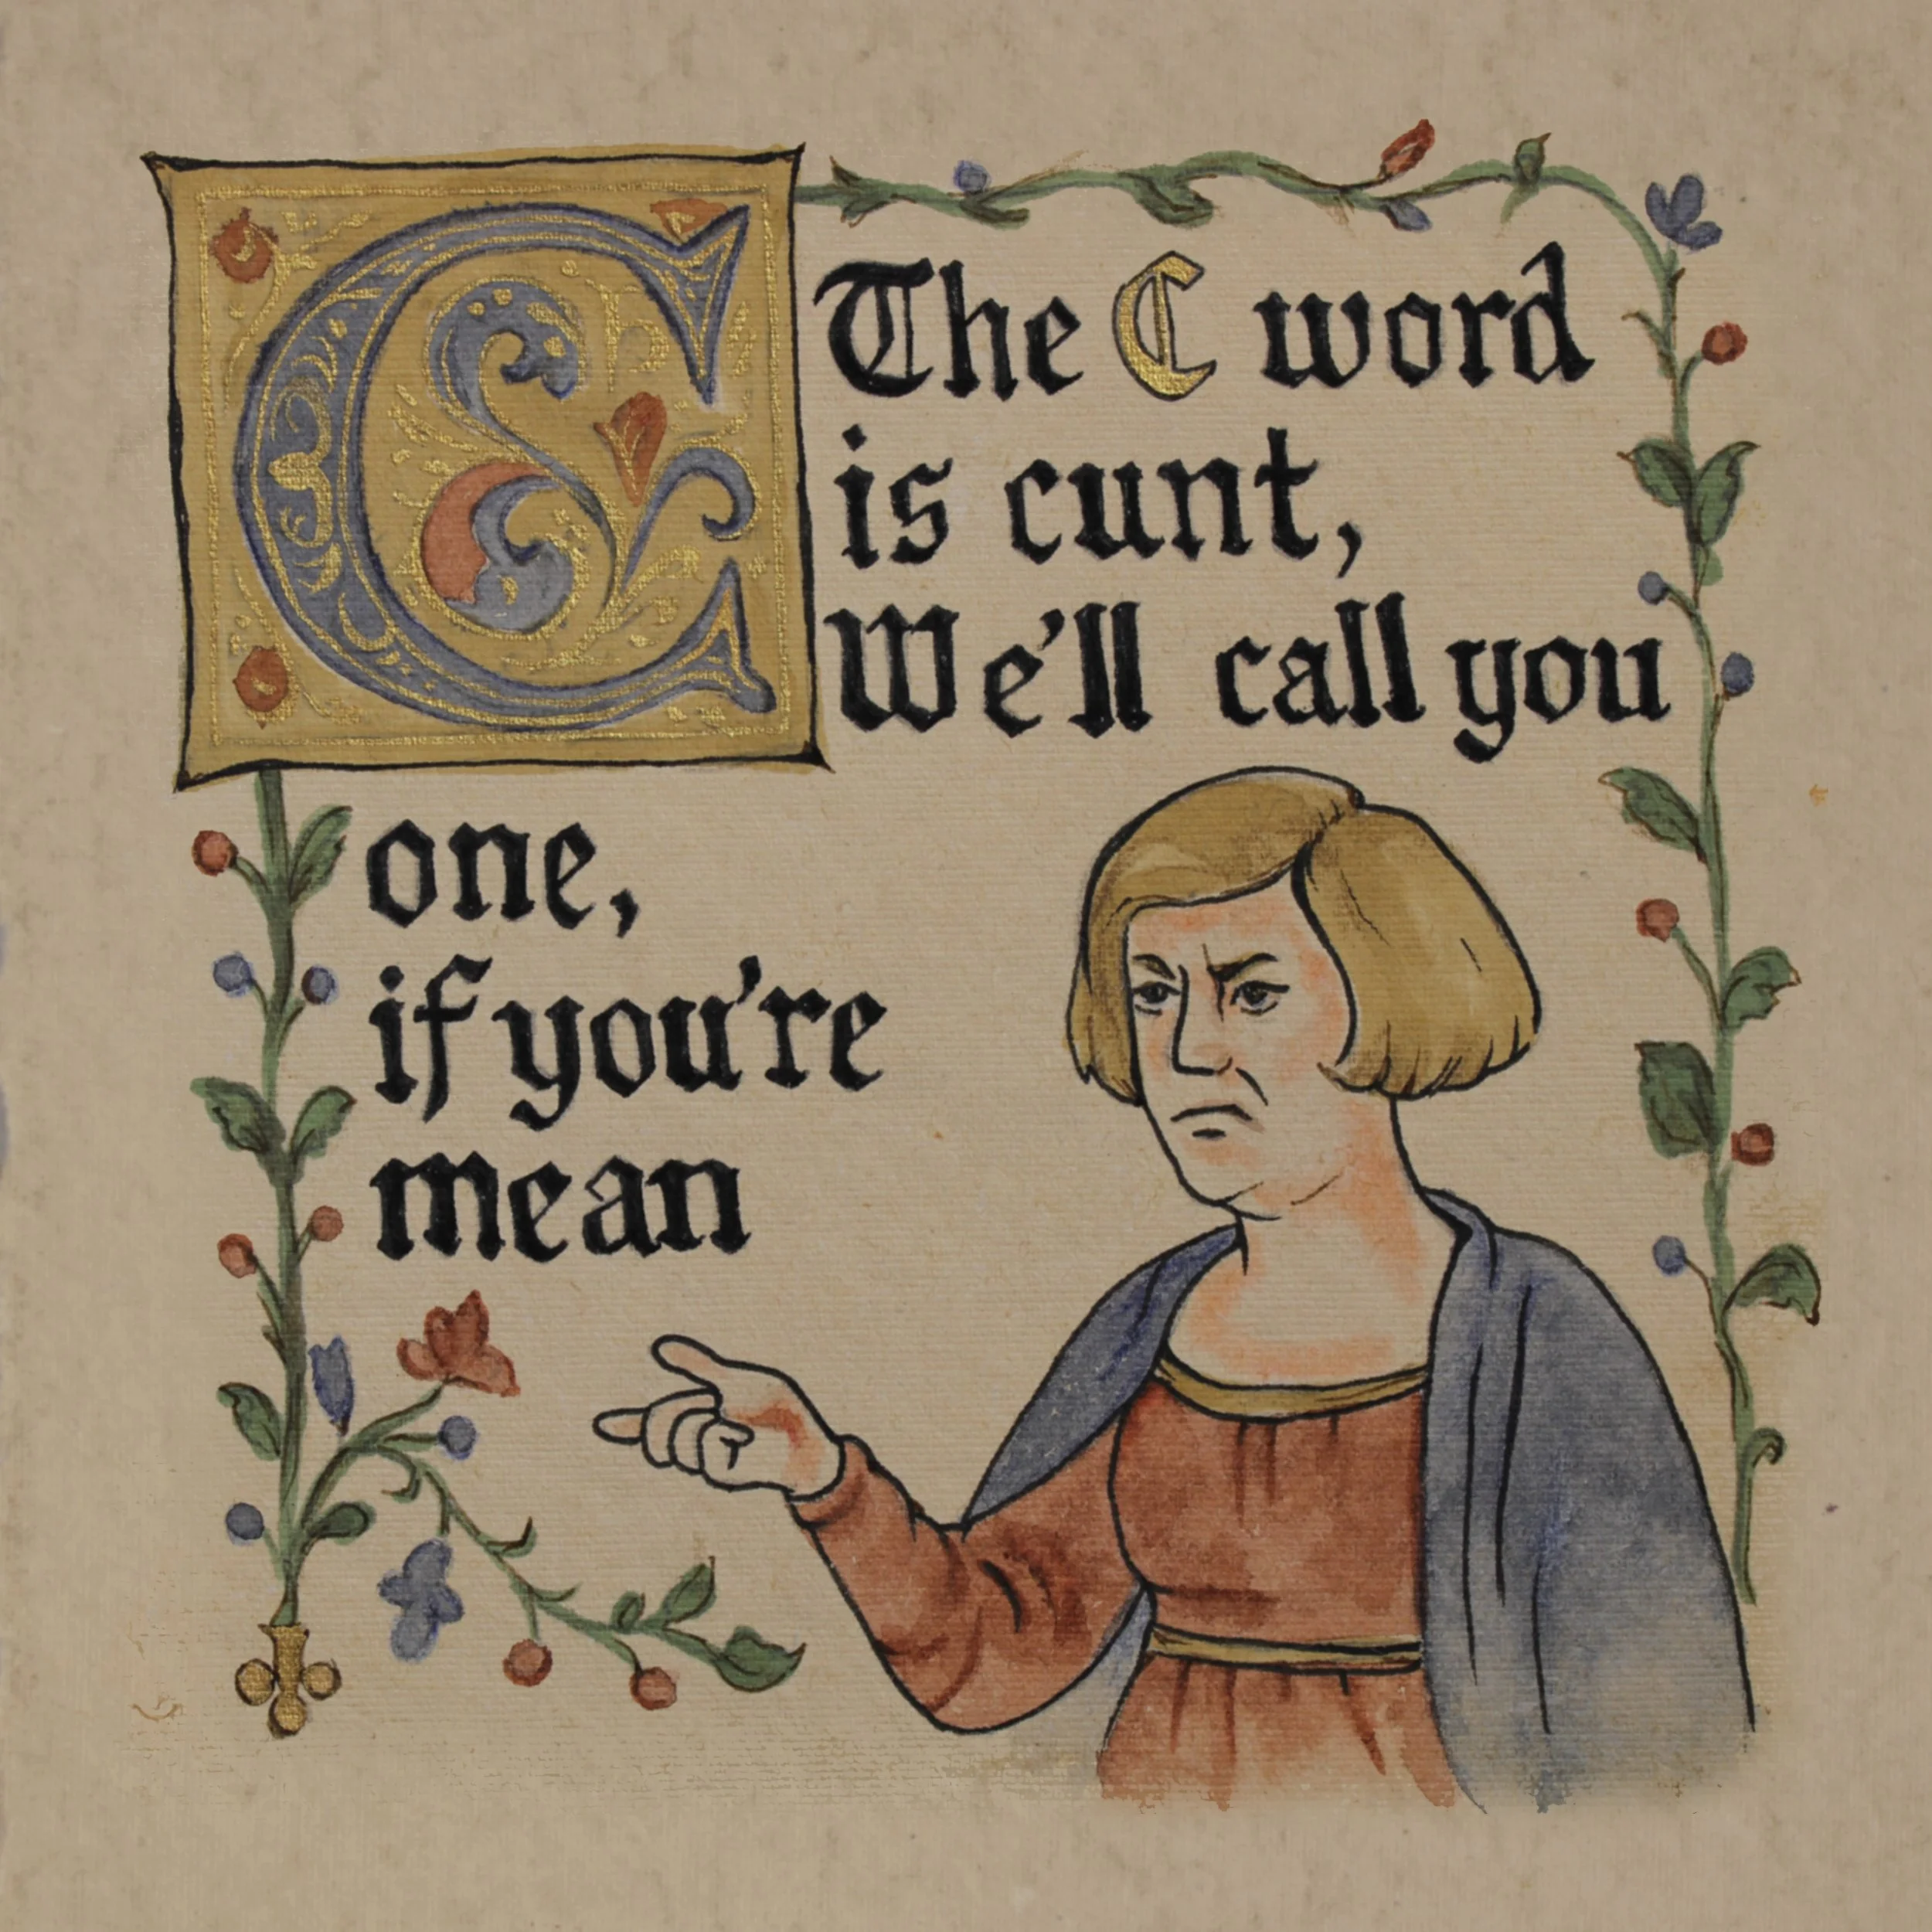 C
The C word
is cunt,
We'll call you
one,
if you're
mean